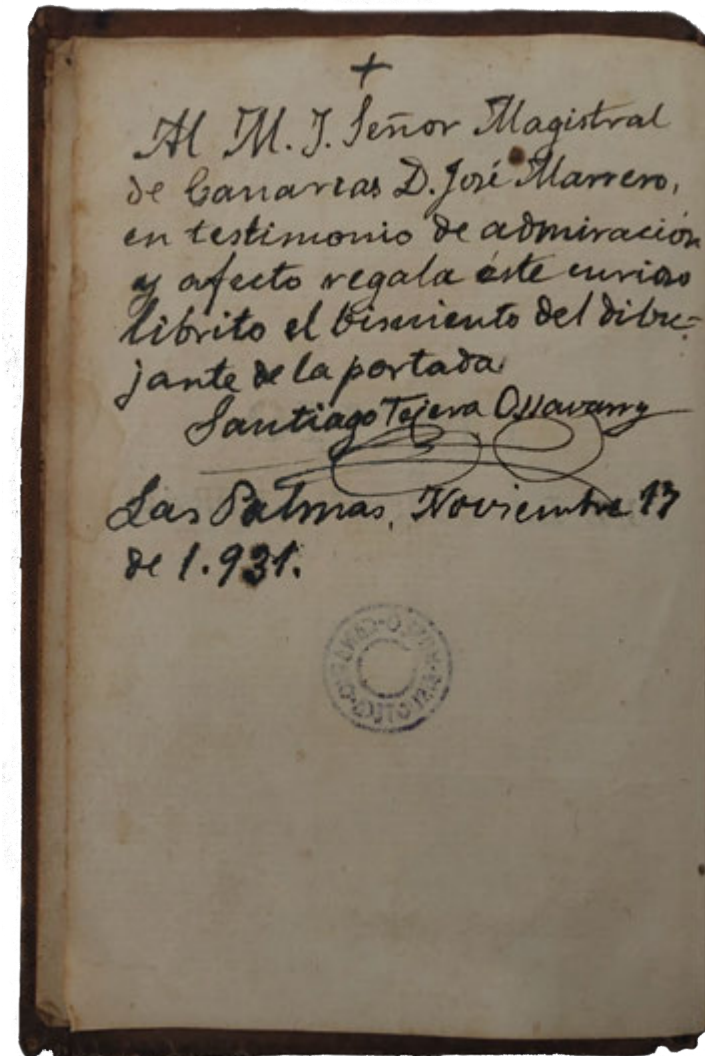 +
Al M. I. Señor Magistral
de Canarias D. José Marrero,
en testimonio de admiración
y afecto regala éste curioso
librito el bisniento del dibu-
jante de la portada
Santiago Tejera Ossavarry
Las Palmas, Noviembre 13
de 1.931.